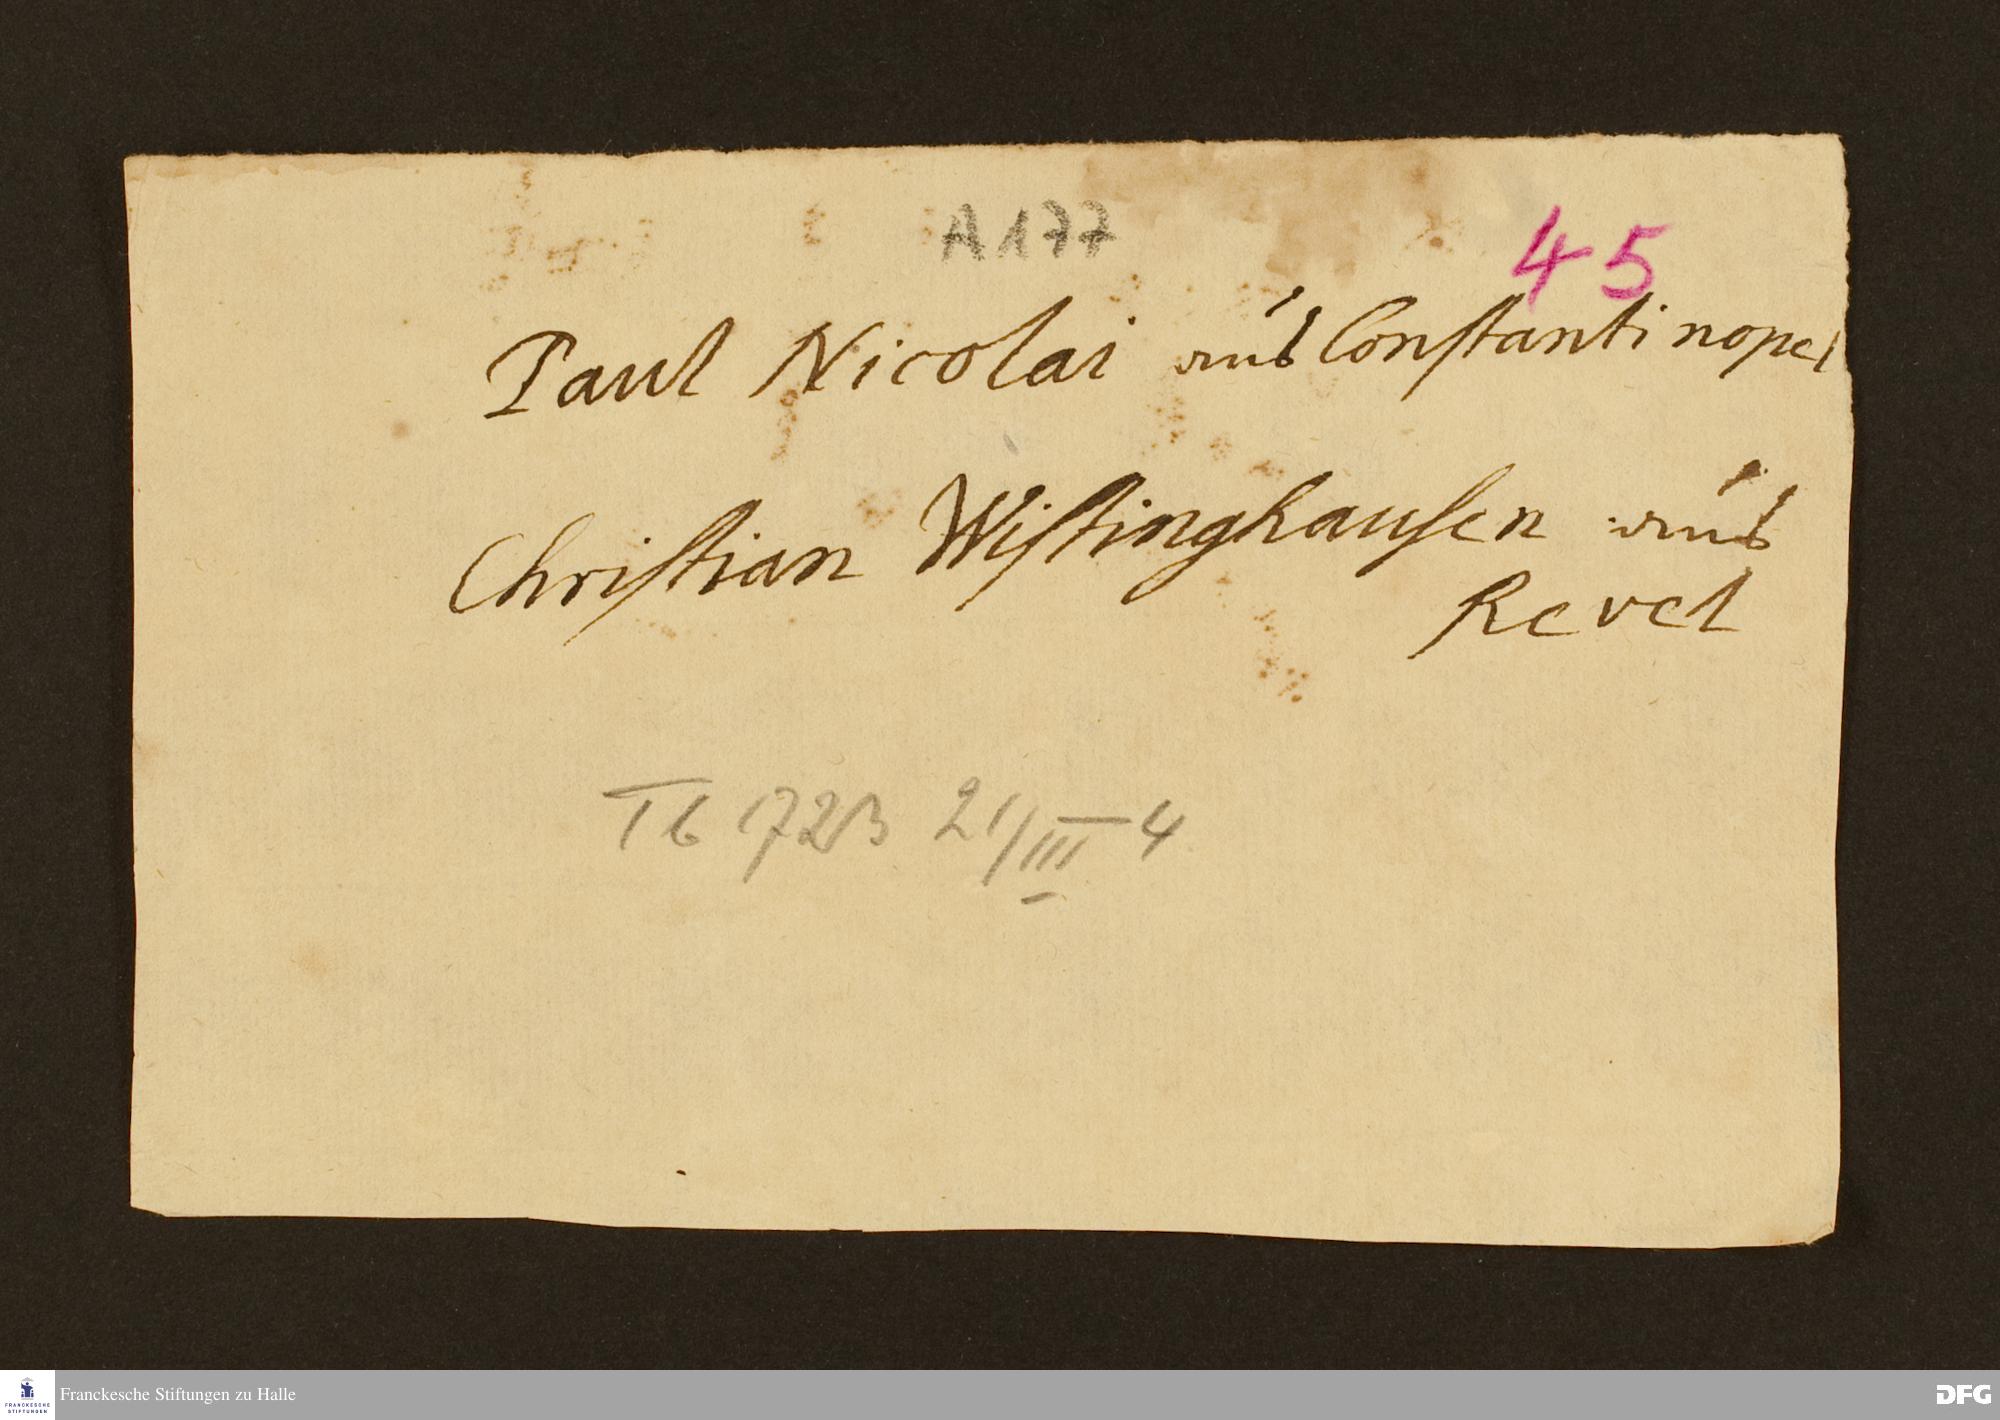 A 177
45
Paul Nicolai aus Constantinopel
Christian Wistinghausen aus
Revel
21/III 4
Franckesche Stiftungen zu Halle
FRANCKESCHE
STIFTUNGEN
DFG